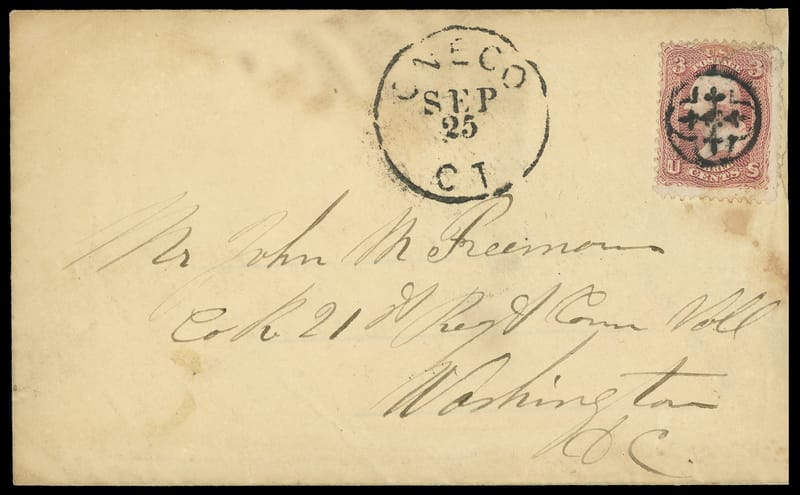 ONECO
SEP
25
CT
3 U.S. 3
POSTAGE
U CENTS S
Mr John M Freeman
Co K 21st Regt Conn Voll
Washington
D C.